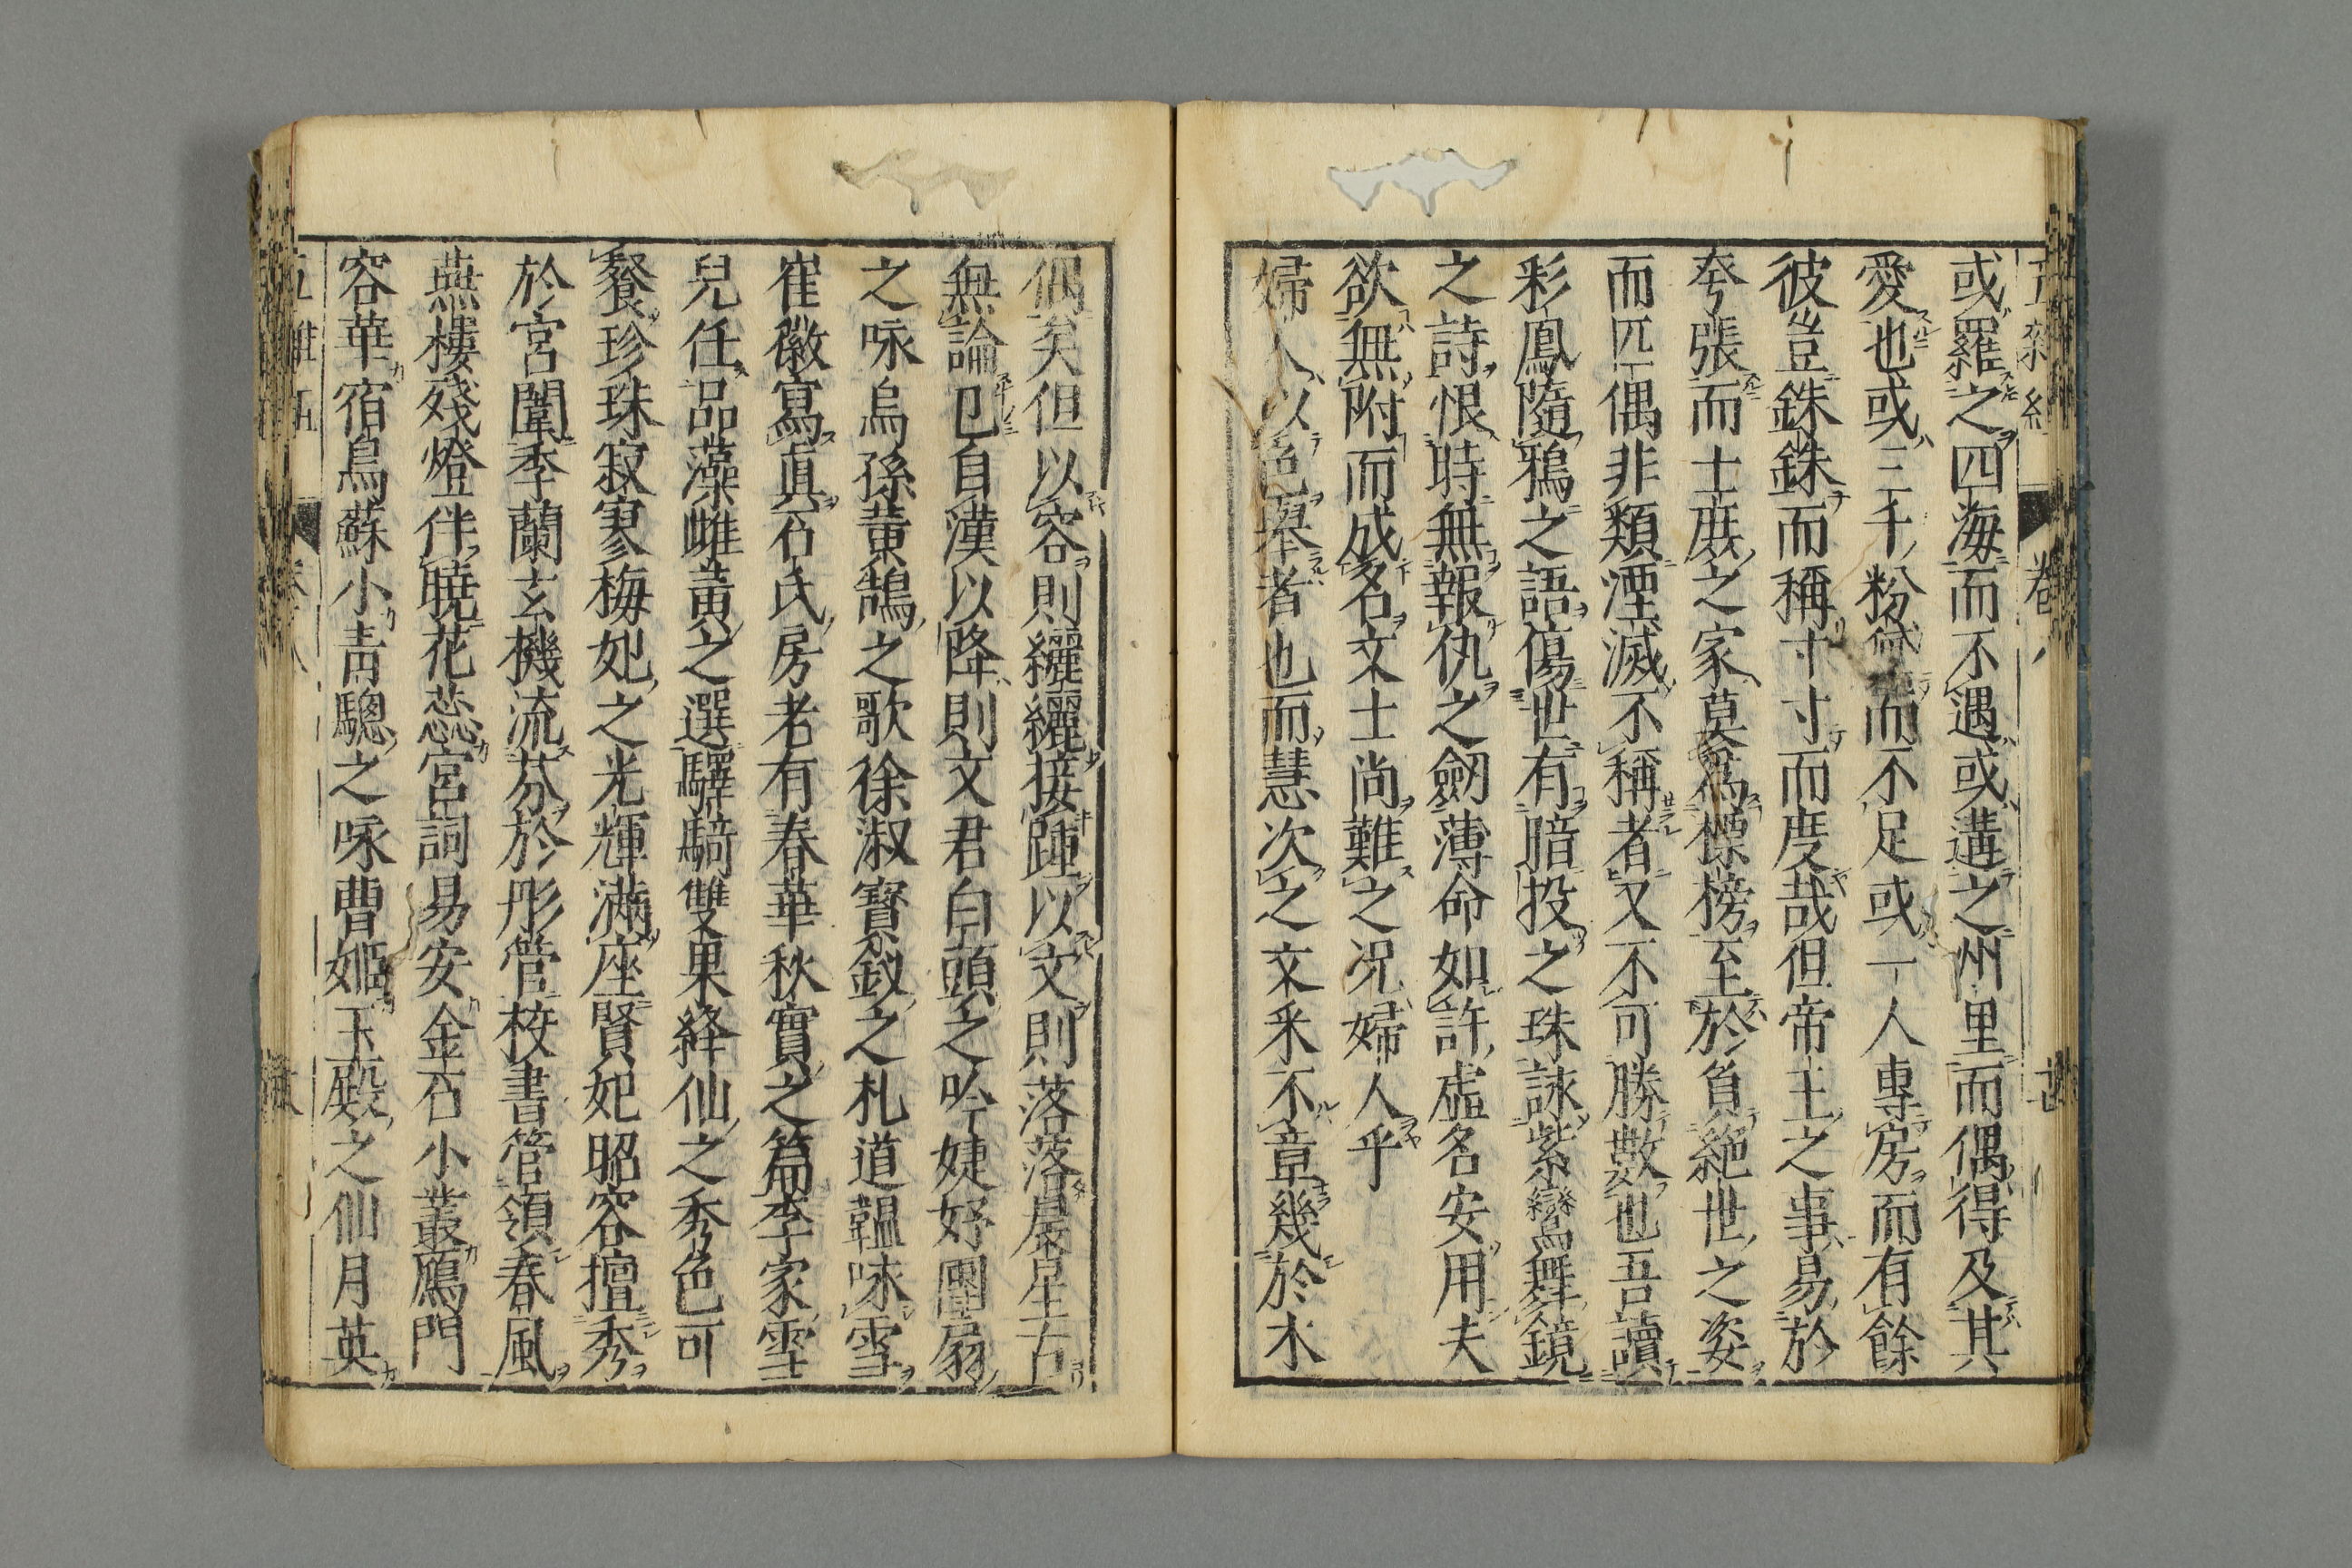 或羅之四海而不遇或遘之州里而偶得及其
愛也或三千粉黛而不足或一人專房而有餘
彼豈銖銖而稱寸寸而度哉但帝王之事易於
夸張而士庶之家莫爲標榜至於負絕世之姿
而匹偶非類湮滅不稱者又不可勝數也吾讀
彩鳳隨鴉之語傷世有暗投之珠詠紫鸞舞鏡
之詩恨時無報仇之劒薄命如許虛名安用夫
欲無附而成名文士尚難之况婦人乎
婦人以色舉者也而慧次之文釆不章幾於木
偶矣但以容則纚纚接踵以文則落落晨星古
無論已自漢以降則文君白頭之吟婕妤團扇
之咏烏孫黃鵠之歌徐淑寳釵之札道韞咏雪
崔徽寫眞石氏房老有春華秋實之篇李家雪
兒任品藻雌黃之選驛騎雙果絳仙之秀色可
餐珍珠寂寥梅妃之光輝滿座賢妃昭容擅秀
於宮闈季蘭玄機流芬於彤管校書管領春風
燕樓殘燈伴曉花蕊宮詞易安金石小叢鴈門
容華宿鳥蘇小青驄之咏曹姬玉殿之仙月英